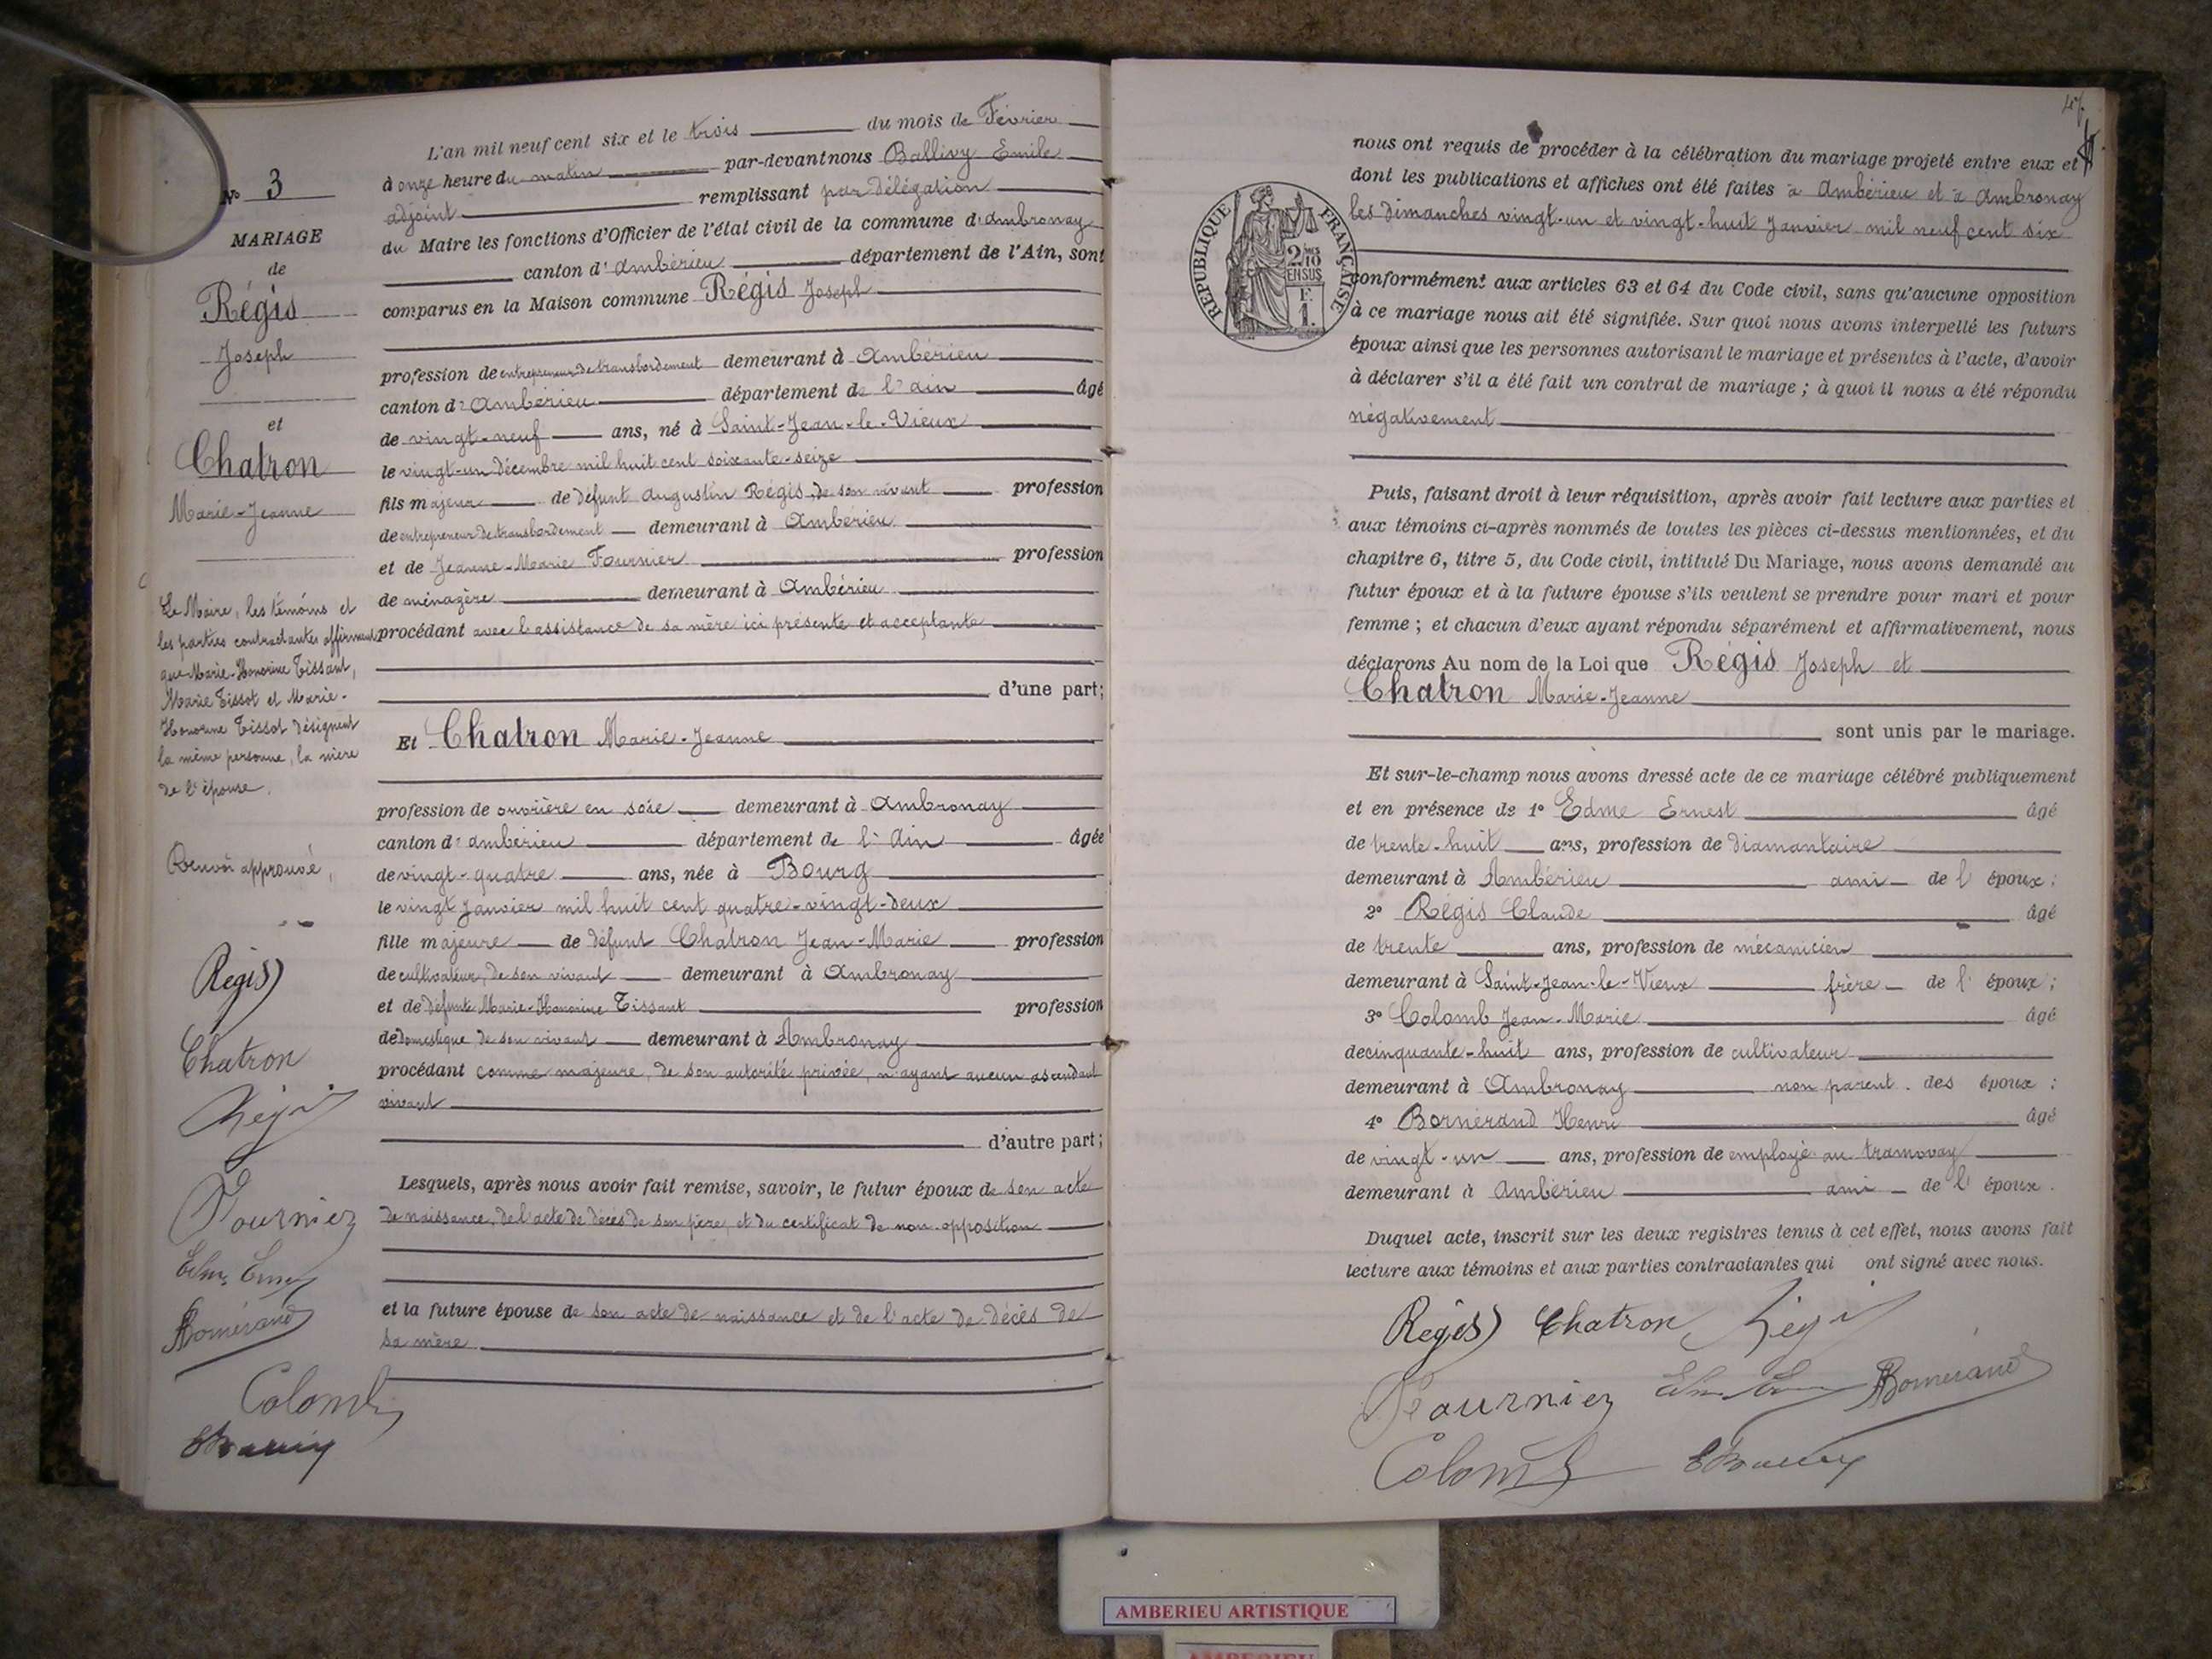 N° 3
MARIAGE
de
Régis
Joseph
et
Chatron
Marie-Jeanne
Le Maire, les témoins et
les parties contractantes affirment
que Marie-Honorine Tissant,
Marie Tissot et Marie-
Honorine Tissot désignent
la même personne, la mère
de l'épouse.
Renvoi approuvé,
Regis
Chatron
Régis
Fournier
Edme Ernest
Bornérand
Colomb
L'an mil neuf cent six et le trois du mois de Février
à onze heure du matin par-devant nous Ballivy Emile
adjoint remplissant par délégation
du Maire les fonctions d'Officier de l'état civil de la commune d'Ambronay
canton d'Ambérieu département de l'Ain, sont
comparus en la Maison commune Régis Joseph
profession de entrepreneur de transbordement demeurant à Ambérieu
canton d'Ambérieu département de l'ain âgé
de vingt-neuf ans, né à Saint-Jean-le-Vieux
le vingt-un Décembre mil huit cent soixante-seize
fils majeur de défunt Augustin Régis, de son vivant profession
de entrepreneur de transbordement demeurant à Ambérieu
et de Jeanne-Marie Fournier profession
de ménagère demeurant à Ambérieu
procédant avec l'assistance de sa mère ici présente et acceptante
d'une part;
Et Chatron Marie-Jeanne
profession de ouvrière en soie demeurant à Ambronay
canton d'ambérieu département de l'Ain âgée
de vingt-quatre ans, née à Bourg
le vingt Janvier mil huit cent quatre-vingt-deux
fille majeure de défunt Chatron Jean-Marie profession
de cultivateur, de son vivant demeurant à Ambronay
et de défunte Marie-Honorine Tissant profession
de domestique de son vivant demeurant à Ambronay
procédant comme majeure, de son autorité privée, n'ayant aucun ascendant
vivant
d'autre part;
Lesquels, après nous avoir fait remise, savoir, le futur époux de son acte
de naissance, de l'acte de décès de son père, et du certificat de non-opposition
et la future épouse de son acte de naissance et de l'acte de décès de
sa mère
47
nous ont requis de procéder à la célébration du mariage projeté entre eux et
dont les publications et affiches ont été faites à Ambérieu et à Ambronay
les dimanches vingt-un et vingt-huit Janvier mil neuf cent six
RÉPUBLIQUE FRANÇAISE
2/10
EN SUS
F.
1.
conformément aux articles 63 et 64 du Code civil, sans qu'aucune opposition
à ce mariage nous ait été signifiée. Sur quoi nous avons interpellé les futurs
époux ainsi que les personnes autorisant le mariage et présentes à l'acte, d'avoir
à déclarer s'il a été fait un contrat de mariage ; à quoi il nous a été répondu
négativement
Puis, faisant droit à leur réquisition, après avoir fait lecture aux parties et
aux témoins ci-après nommés de toutes les pièces ci-dessus mentionnées, et du
chapitre 6, titre 5, du Code civil, intitulé Du Mariage, nous avons demandé au
futur époux et à la future épouse s'ils veulent se prendre pour mari et pour
femme ; et chacun d'eux ayant répondu séparément et affirmativement, nous
déclarons Au nom de la Loi que Régis Joseph et
Chatron Marie-Jeanne
sont unis par le mariage.
Et sur-le-champ nous avons dressé acte de ce mariage célébré publiquement
et en présence de 1° Edme Ernest âgé
de trente-huit ans, profession de diamantaire
demeurant à Ambérieu ami de l'époux ;
2° Régis Claude âgé
de trente ans, profession de mécanicien
demeurant à Saint-Jean-le-Vieux frère de l'époux ;
3° Colomb Jean-Marie âgé
de cinquante-huit ans, profession de cultivateur
demeurant à Ambronay non parent des époux ;
4° Bornérand Henri âgé
de vingt-un ans, profession de employé au tramway
demeurant à Ambérieu ami de l'époux.
Duquel acte, inscrit sur les deux registres tenus à cet effet, nous avons fait
lecture aux témoins et aux parties contractantes qui ont signé avec nous.
Regis Chatron Régis
Fournier Edme Ernest Bornérand
Colomb
AMBERIEU ARTISTIQUE
AMBERIEU